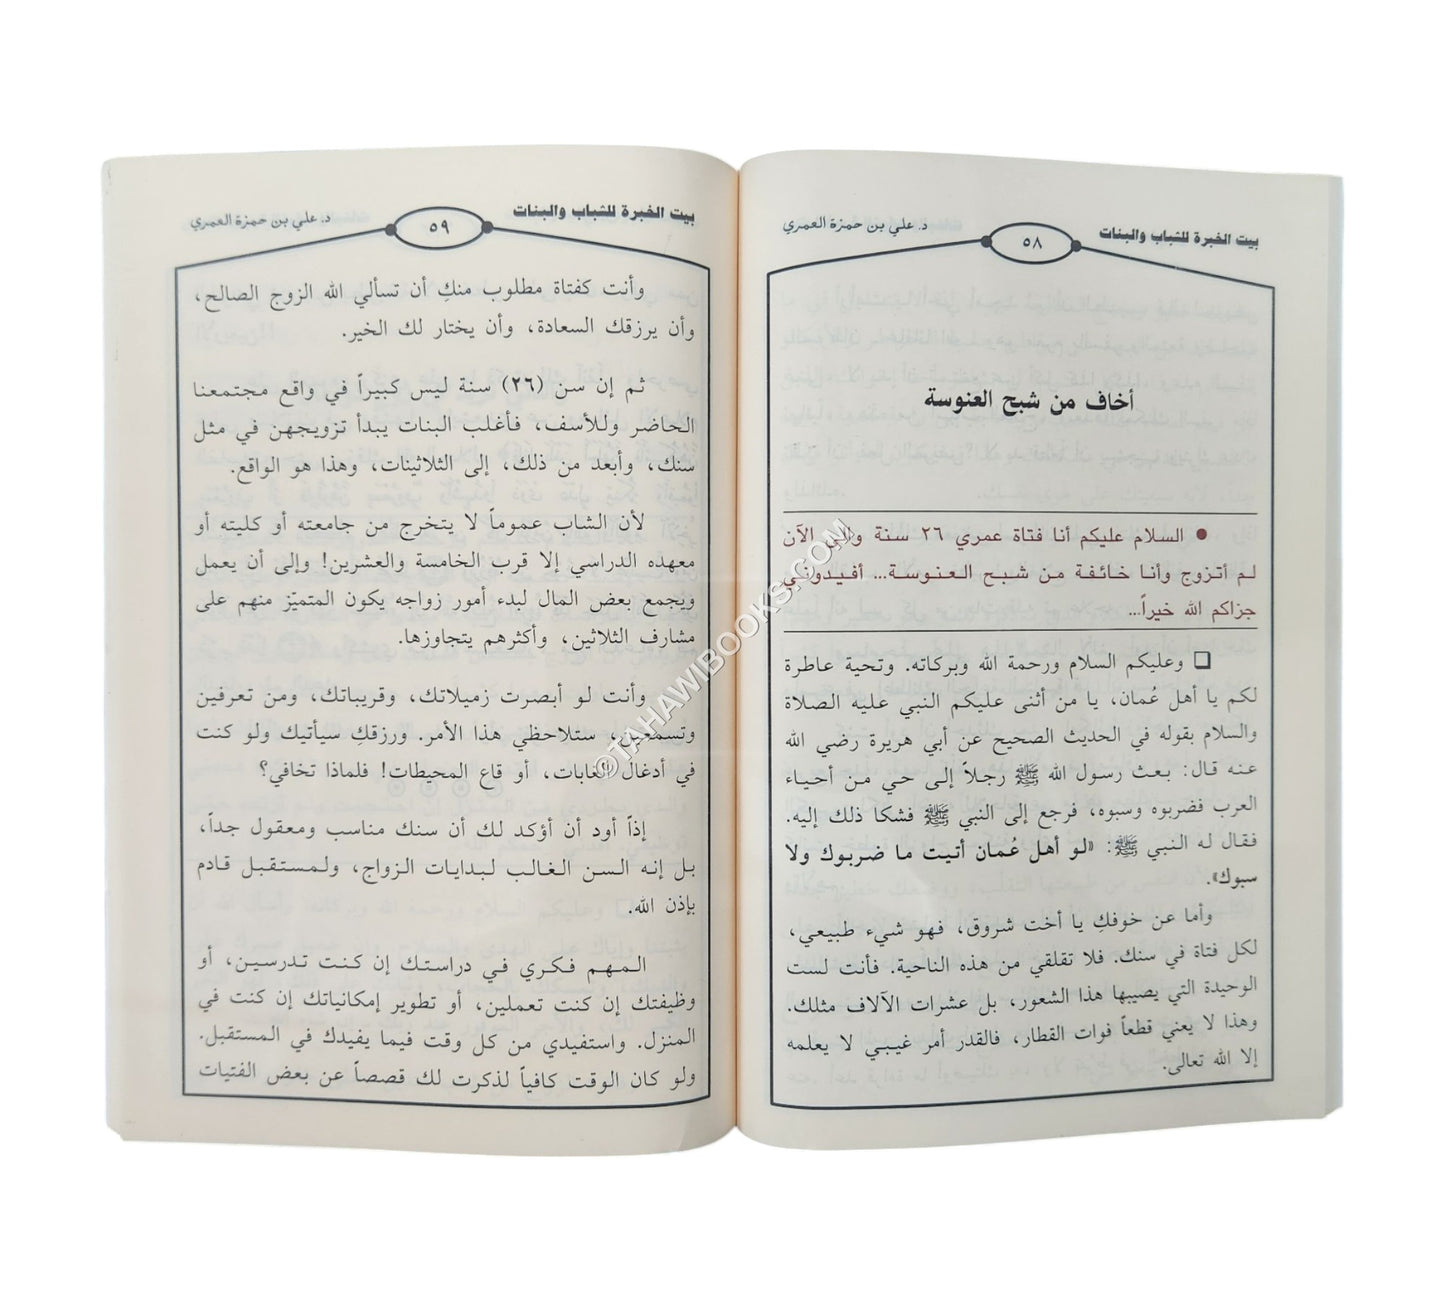 بيت الخبرة للشباب والبنات ٥٨ د. علي بن حمزة العمري
أخاف من شبح العنوسة
● السلام عليكم أنا فتاة عمري ٢٦ سنة وإلى الآن
لم أتزوج وأنا خائفة من شبح العنوسة... أفيدوني
جزاكم الله خيراً...
❑ وعليكم السلام ورحمة الله وبركاته. وتحية عاطرة
لكم يا أهل عُمان، يا من أثنى عليكم النبي عليه الصلاة
والسلام بقوله في الحديث الصحيح عن أبي هريرة رضي الله
عنه قال: بعث رسول الله ﷺ رجلاً إلى حي من أحياء
العرب فضربوه وسبوه، فرجع إلى النبي ﷺ فشكا ذلك إليه.
فقال له النبي ﷺ: «لو أهل عُمان أتيت ما ضربوك ولا
سبوك».
وأما عن خوفكِ يا أخت شروق، فهو شيء طبيعي،
لكل فتاة في سنك. فلا تقلقي من هذه الناحية. فأنت لست
الوحيدة التي يصيبها هذا الشعور، بل عشرات الآلاف مثلك.
وهذا لا يعني قطعاً فوات القطار، فالقدر أمر غيبي لا يعلمه
إلا الله تعالى.
بيت الخبرة للشباب والبنات ٥٩ د. علي بن حمزة العمري
وأنت كفتاة مطلوب منكِ أن تسألي الله الزوج الصالح،
وأن يرزقك السعادة، وأن يختار لك الخير.
ثم إن سن (٢٦) سنة ليس كبيراً في واقع مجتمعنا
الحاضر وللأسف، فأغلب البنات يبدأ تزويجهن في مثل
سنك، وأبعد من ذلك، إلى الثلاثينات، وهذا هو الواقع.
لأن الشاب عموماً لا يتخرج من جامعته أو كليته أو
معهده الدراسي إلا قرب الخامسة والعشرين! وإلى أن يعمل
ويجمع بعض المال لبدء أمور زواجه يكون المتميّز منهم على
مشارف الثلاثين، وأكثرهم يتجاوزها.
وأنت لو أبصرت زميلاتك، وقريباتك، ومن تعرفين
وتسمعين، ستلاحظي هذا الأمر. ورزقكِ سيأتيك ولو كنت
في أدغال الغابات، أو قاع المحيطات! فلماذا تخافي؟
إذاً أود أن أؤكد لك أن سنك مناسب ومعقول جداً،
بل إنه السن الغالب لبدايات الزواج، ولمستقبل قادم
بإذن الله.
المهم فكري في دراستك إن كنت تدرسين، أو
وظيفتك إن كنت تعملين، أو تطوير إمكانياتك إن كنت في
المنزل. واستفيدي من كل وقت فيما يفيدك في المستقبل.
ولو كان الوقت كافياً لذكرت لك قصصاً عن بعض الفتيات
©TAHAWIBOOKS.COM